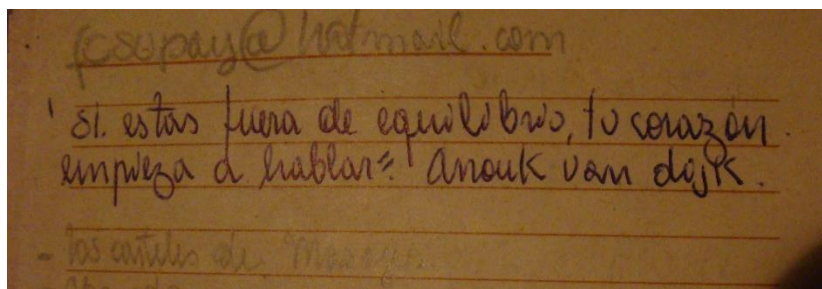 fcsopay@hotmail.com
"Si estas fuera de equilibrio, tu corazón
empieza a hablar". Anouk van dijk.
- los carteles de